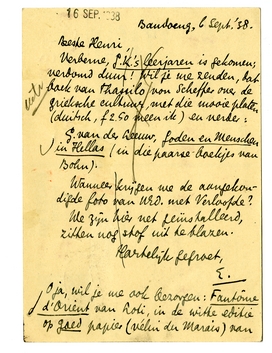 16 SEP. 1938
Bandoeng, 6 Sept. '38.
Beste Henri,
Verberne, J.K.'s leerjaren is gekomen;
verbond dum! Wil je me zenden, het
boek van Thassilo von Scheffer over de
grieksche cultuur, met die mooie platen
(duitsch, f 2.50 meen ik) en verder:
G. van der Leeuw, Goden en Menschen
in Hellas (in die paarse boekjes van
Bohn).
Wanneer krijgen we de aangekon-
digde foto van W&D. met Verloofde?
We zijn hier net geïnstalleerd,
zitten nog stof uit te blazen.
Hartelijk gegroet,
E.
O ja, wil je me ook bezorgen: Fantôme
d'Orient van Loti, in de witte editie
op goed papier (vélin du Marais) van